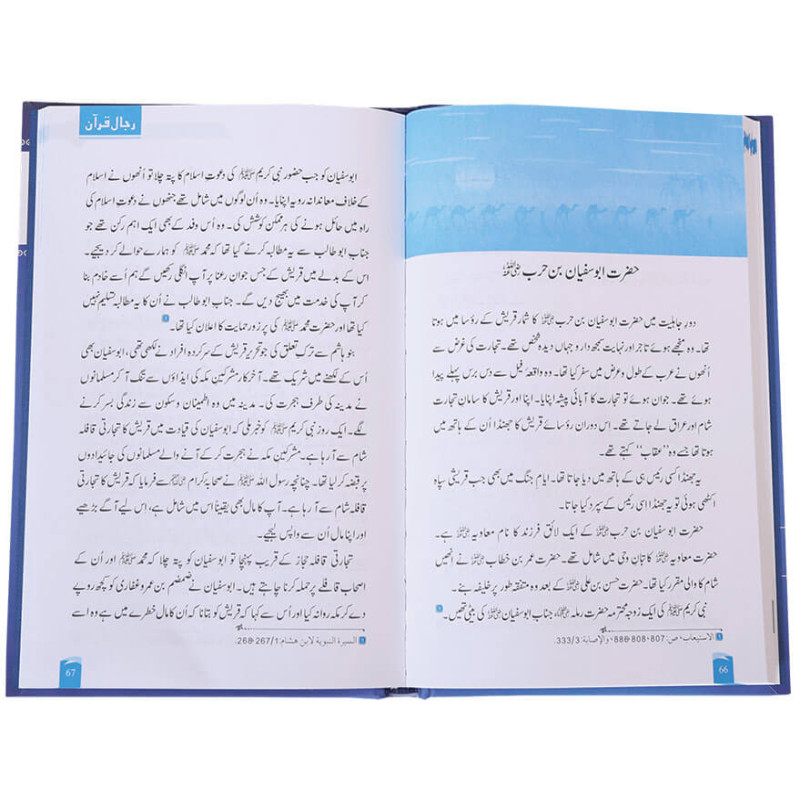 حضرت ابوسفیان بن حرب رضی اللہ عنہ
دورِ جاہلیت میں حضرت ابوسفیان بن حرب رضی اللہ عنہ کا شمار قریش کے رؤسا میں ہوتا
تھا۔ وہ منجھے ہوئے تاجر اور نہایت سمجھ دار و جہاں دیدہ شخص تھے۔ تجارت کی غرض سے
اُنھوں نے عرب کے طول و عرض میں سفر کیا تھا۔ وہ واقعۂ فیل سے دس برس پہلے پیدا
ہوئے تھے۔ جوان ہوئے تو تجارت کا آبائی پیشہ اپنایا۔ اپنا اور قریش کا سامانِ تجارت
شام اور عراق لے جاتے تھے۔ اس دوران رؤسائے قریش کا جھنڈا اُن کے ہاتھ میں
ہوتا تھا جسے وہ ”عقاب“ کہتے تھے۔
یہ جھنڈا کسی رئیس ہی کے ہاتھ میں دیا جاتا تھا۔ ایامِ جنگ میں بھی جب قریشی سپاہ
اکٹھی ہوتی تو یہ جھنڈا اسی رئیس کے سپرد کیا جاتا۔
حضرت ابوسفیان بن حرب رضی اللہ عنہ کے ایک لائق فرزند کا نام معاویہ رضی اللہ عنہ ہے۔
حضرت معاویہ رضی اللہ عنہ کاتبانِ وحی میں شامل تھے۔ حضرت عمر بن خطاب رضی اللہ عنہ نے انھیں
شام کا والی مقرر کیا تھا۔ حضرت حسن بن علی رضی اللہ عنہ کے بعد وہ متفقہ طور پر خلیفہ بنے۔
نبی کریم ﷺ کی ایک زوجہ محترمہ حضرت رملہ، جناب ابوسفیان رضی اللہ عنہ کی بیٹی تھیں۔
الاستیعاب، ص: 807، 808، 888، والإصابة: 333/3.
66
رجال قرآن
ابوسفیان کو جب حضور نبی کریم ﷺ کی دعوتِ اسلام کا پتہ چلا تو اُنھوں نے اسلام
کے خلاف معاندانہ رویہ اپنایا۔ وہ اُن لوگوں میں شامل تھے جنھوں نے دعوتِ اسلام کی
راہ میں حائل ہونے کی ہر ممکن کوشش کی۔ وہ اُس وفد کے بھی ایک اہم رکن تھے جو
جناب ابو طالب سے یہ مطالبہ کرنے گیا تھا کہ محمد ﷺ کو ہمارے حوالے کر دیجیے۔
اس کے بدلے میں قریش کے جس جوانِ رعنا پر آپ انگلی رکھیں گے ہم اُسے خادم بنا
کر آپ کی خدمت میں بھیج دیں گے۔ جناب ابو طالب نے اُن کا یہ مطالبہ تسلیم نہیں
کیا تھا اور حضرت محمد ﷺ کی پر زور حمایت کا اعلان کیا تھا۔
بنو ہاشم سے ترکِ تعلق کی جو تحریر قریش کے سرکردہ افراد نے لکھی تھی، ابوسفیان بھی
اُس کے لکھنے میں شریک تھے۔ آخر کار مشرکینِ مکہ کی ایذاؤں سے تنگ آ کر مسلمانوں
نے مدینہ کی طرف ہجرت کی۔ مدینہ میں وہ اطمینان و سکون سے زندگی بسر کرنے
لگے۔ ایک روز نبی کریم ﷺ کو خبر ملی کہ ابوسفیان کی قیادت میں قریش کا تجارتی قافلہ
شام سے آ رہا ہے۔ مشرکینِ مکہ نے ہجرت کر کے آنے والے مسلمانوں کی جائیدادوں
پر قبضہ کر لیا تھا۔ چنانچہ رسول اللہ ﷺ نے صحابہ کرام رضی اللہ عنہم سے فرمایا کہ قریش کا تجارتی
قافلہ شام سے آ رہا ہے۔ آپ کا مال بھی یقیناً اُس میں شامل ہے، اس لیے آگے بڑھیے
اور اپنا مال اُن سے واپس لیجیے۔
تجارتی قافلہ حجاز کے قریب پہنچا تو ابوسفیان کو پتہ چلا کہ محمد ﷺ اور اُن کے
اصحاب قافلے پر حملہ کرنا چاہتے ہیں۔ ابوسفیان نے ضمضم بن عمرو غفاری کو کچھ روپے
دے کر مکہ روانہ کیا اور اُس سے کہا کہ قریش کو بتانا کہ اُن کا مال خطرے میں ہے وہ اسے
السيرة النبوية لابن هشام: 267/1، 268.
67